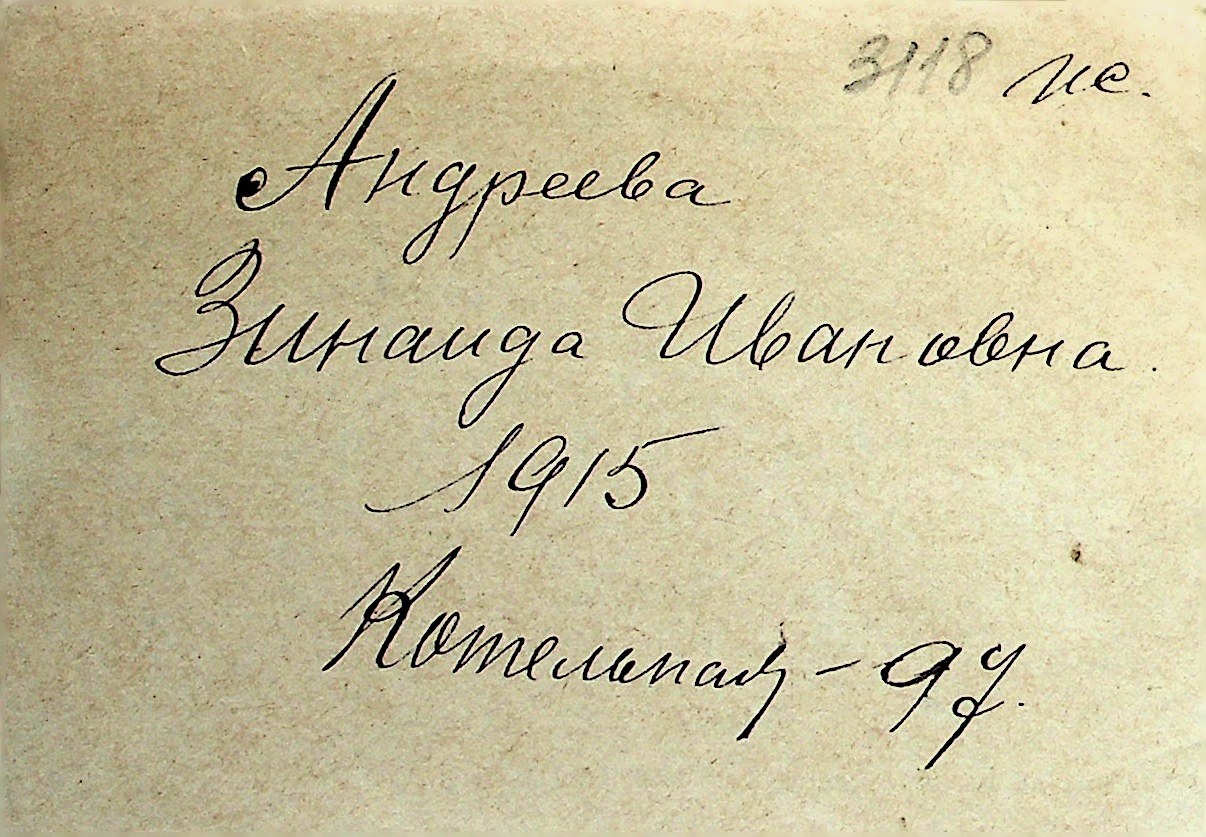 3118 ис.
Андреева
Зинаида Ивановна.
1915
Котельная – 97.